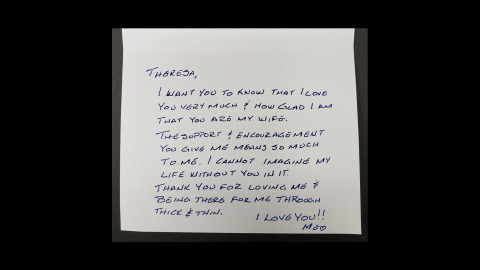 THERESA,
I WANT YOU TO KNOW THAT I LOVE
YOU VERY MUCH & HOW GLAD I AM
THAT YOU ARE MY WIFE.
THE SUPPORT & ENCOURAGEMENT
YOU GIVE ME MEANS SO MUCH
TO ME. I CANNOT IMAGINE MY
LIFE WITHOUT YOU IN IT.
THANK YOU FOR LOVING ME &
BEING THERE FOR ME THROUGH
THICK & THIN.
I LOVE YOU!!
ME♡